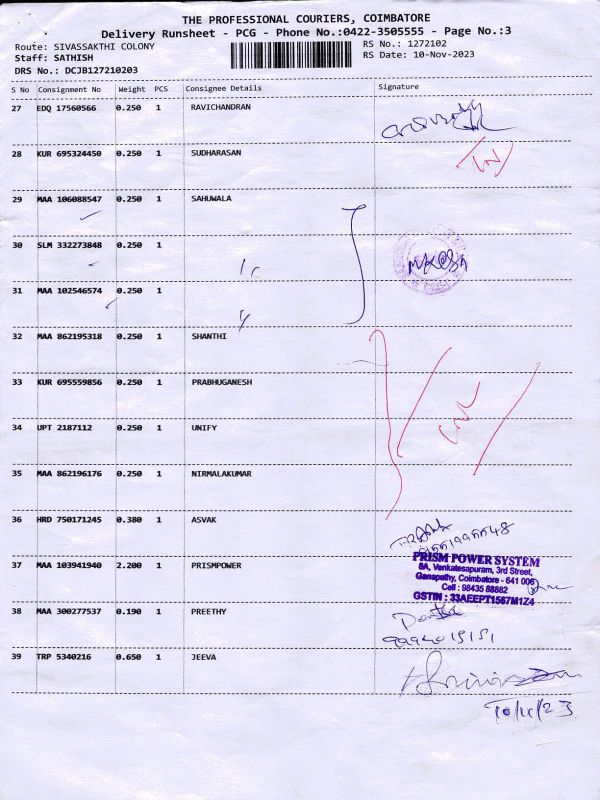 THE PROFESSIONAL COURIERS, COIMBATORE
Delivery Runsheet - PCG - Phone No.:0422-3505555 - Page No.:3
Route: SIVASSAKTHI COLONY RS No.: 1272102
Staff: SATHISH RS Date: 10-Nov-2023
DRS No.: DCJB127210203
S No Consignment No Weight PCS Consignee Details Signature
27 EDQ 17560566 0.250 1 RAVICHANDRAN
28 KUR 695324450 0.250 1 SUDHARASAN
29 MAA 106088547 0.250 1 SAHUWALA
30 SLM 332273848 0.250 1
31 MAA 102546574 0.250 1
32 MAA 862195318 0.250 1 SHANTHI
33 KUR 695559856 0.250 1 PRABHUGANESH
34 UPT 2187112 0.250 1 UNIFY
35 MAA 862196176 0.250 1 NIRMALAKUMAR
36 HRD 750171245 0.380 1 ASVAK
37 MAA 103941940 2.200 1 PRISMPOWER
PRISM POWER SYSTEM
8A, Venkatesapuram, 3rd Street,
Ganapathy, Coimbatore - 641 006
Cell : 98435 88882
GSTIN : 33AEEPT1567M1Z4
38 MAA 300277537 0.190 1 PREETHY
9994019151
39 TRP 5340216 0.650 1 JEEVA
10/11/23